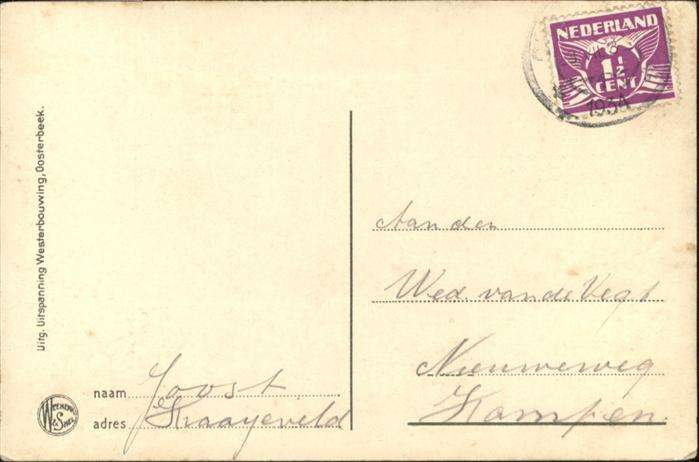 Uitg. Uitspanning Westerbouwing, Oosterbeek.
naam Joost
adres Kraayeveld
WEENENK & SNEL
NEDERLAND
1½
CENT
1934
Aan den
Wed. van de Vegt
Nieuweweg
Kampen.